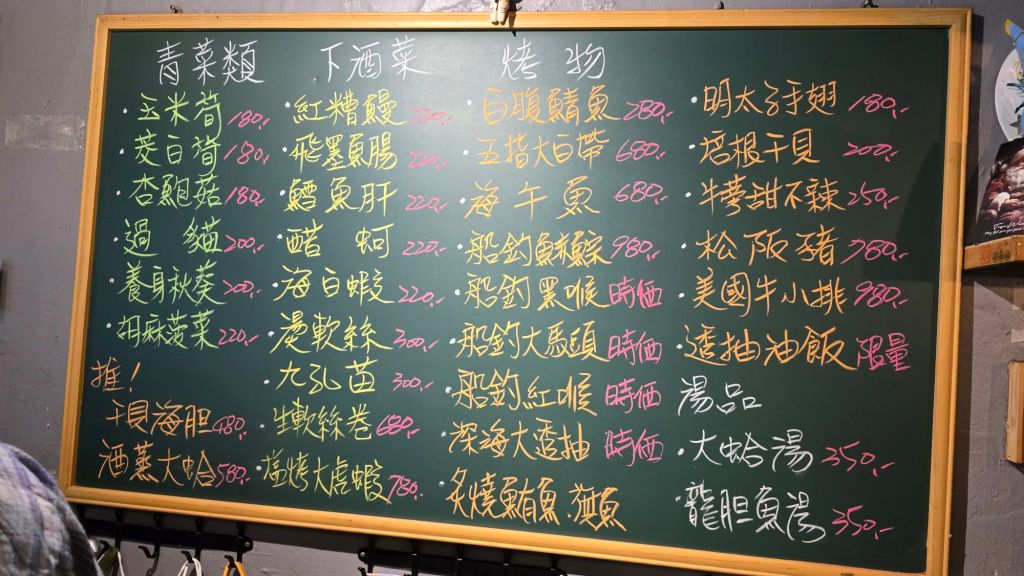 青菜類
玉米筍 180.-
茭白筍 180.-
杏鮑菇 180.-
過貓 200.-
養身秋葵 200.-
胡麻菠菜 220.-
推!
干貝海胆 480.-
酒蒸大蛤 580.-
下酒菜
紅糟鰻 220.-
飛墨魚腸 220.-
鱈魚肝 220.-
醋蚵 220.-
海白蝦 220.-
湯軟絲 300.-
九孔苗 300.-
生軟絲卷 680.-
塩烤大虎蝦 780.-
烤物
白腹鯖魚 280.-
五指大白帶 680.-
海午魚 680.-
船釣 980.-
船釣黑喉 時価
船釣大馬頭 時価
船釣紅喉 時価
深海大透抽 時価
炙燒鮪魚
明太子手翅 180.-
培根干貝 200.-
牛蒡甜不辣 250.-
松阪豬 760.-
美國牛小排 980.-
透抽油飯 限量
湯品
大蛤湯 350.-
龍胆魚湯 350.-